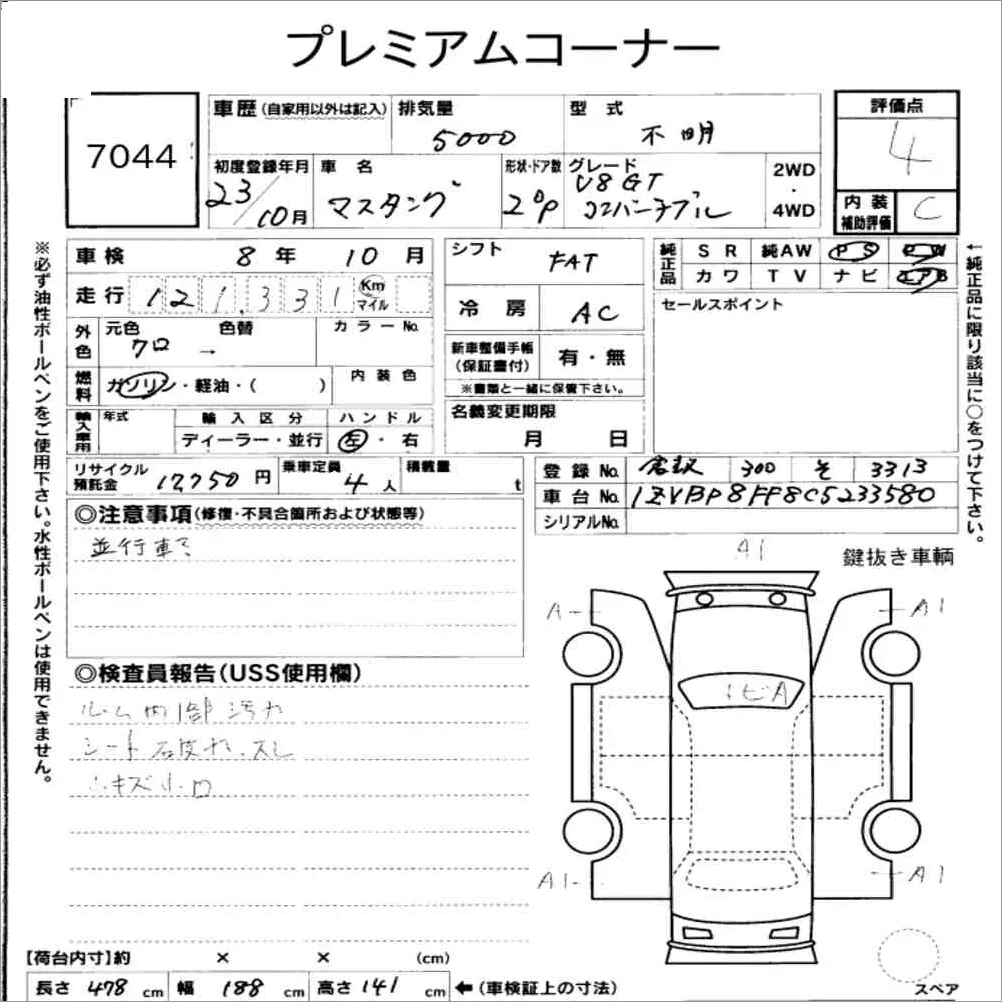 プレミアムコーナー
7044
車歴(自家用以外は記入)
排気量
5000
型式
不明
評価点
4
初度登録年月
23/10月
車名
マスタング
形状・ドア数
2Dp
グレード
V8 GT
コンバーチブル
2WD
・
4WD
内装
補助評価
C
車検 8年 10月
走行 121,331 Km マイル
シフト
FAT
純正品
SR 純AW PS PW
カワ TV ナビ エアB
←純正品に限り該当に○をつけて下さい。
冷房
AC
セールスポイント
外色
元色
クロ
→
色替
カラーNo.
新車整備手帳
(保証書付)
有・無
※書類と一緒に保管下さい。
燃料
ガソリン・軽油・( )
内装色
輸入車用
年式
輸入区分
ディーラー・並行
ハンドル
左・右
名義変更期限
月 日
リサイクル
預託金
17,750円
乗車定員
4人
積載量
t
登録No. 300 そ 3313
車台No. 1ZVBP8FF8C5233580
シリアルNo.
※必ず油性ボールペンをご使用下さい。水性ボールペンは使用できません。
◎注意事項(修復・不具合箇所および状態等)
並行車
鍵抜き車輌
A1
A
A1
トビA
A1
A1
スペア
◎検査員報告(USS使用欄)
ルーム内1部汚れ
シート破れ、スレ
小キズ小凹
【荷台内寸】約 × × (cm)
長さ 478 cm 幅 188 cm 高さ 141 cm ←(車検証上の寸法)